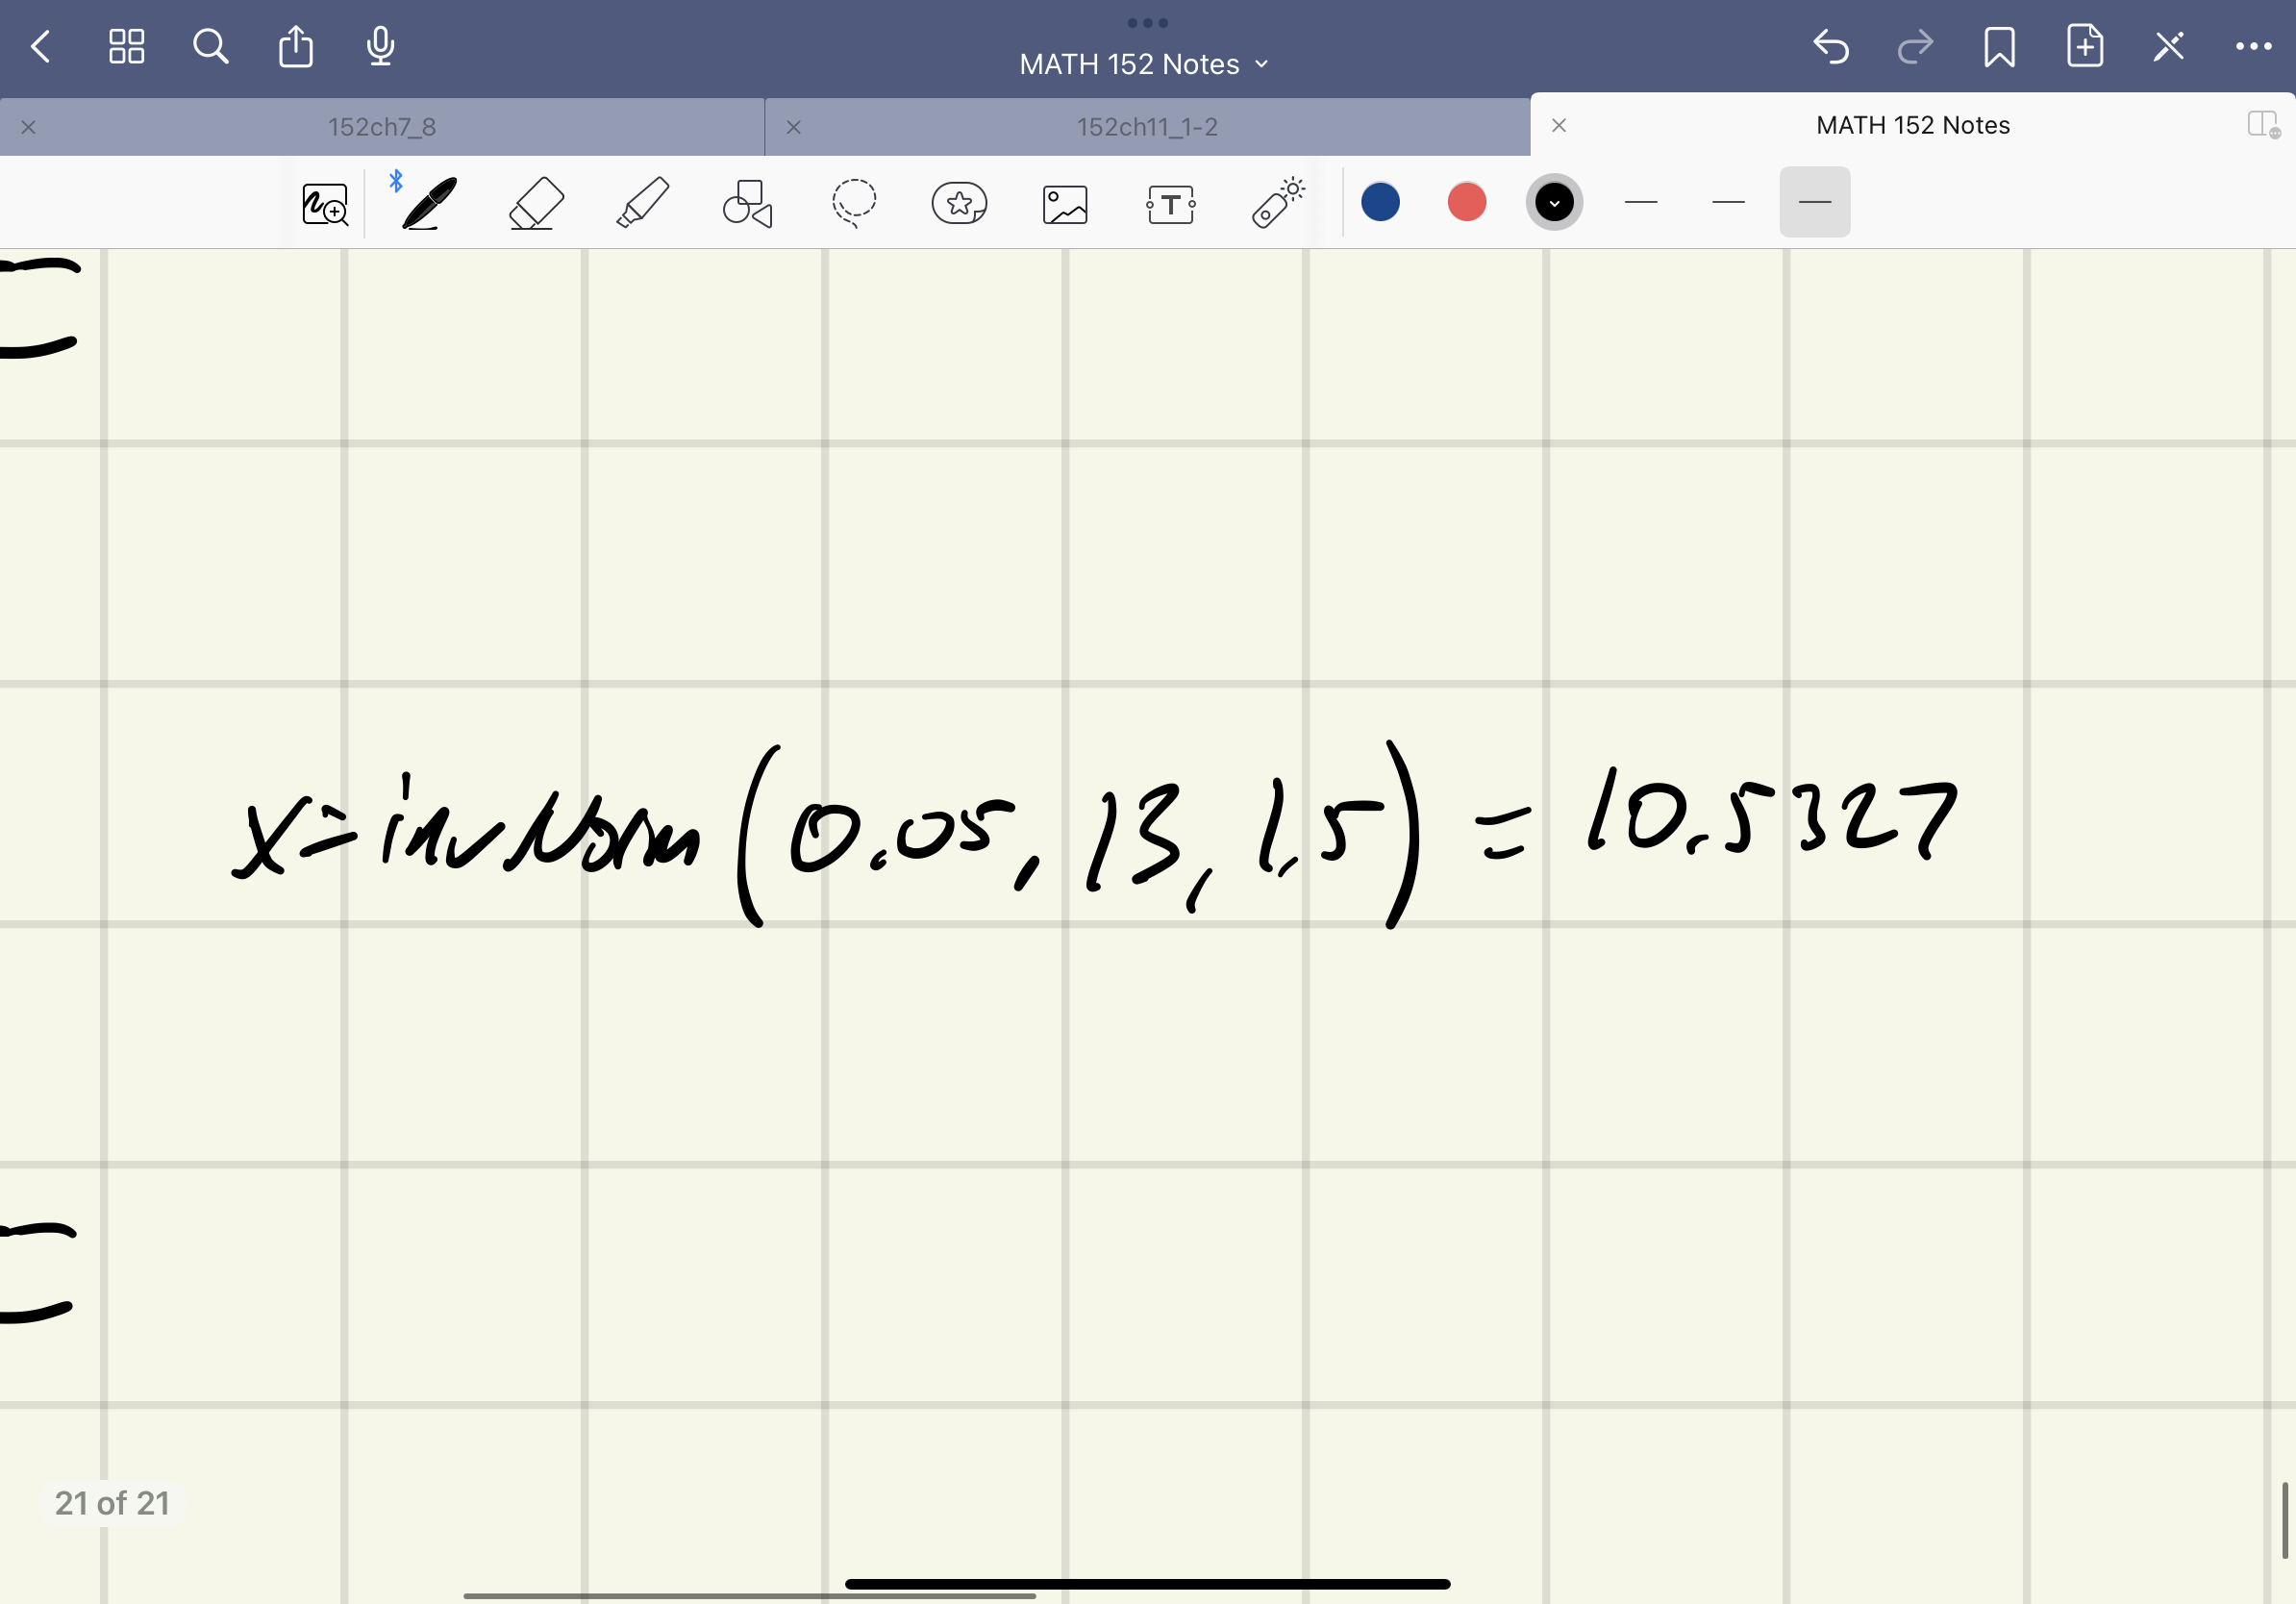 MATH 152 Notes
152ch7_8
152ch11_1-2
MATH 152 Notes
T
x=invNorm(0.05, 13, 1.5) = 10.5327
21 of 21